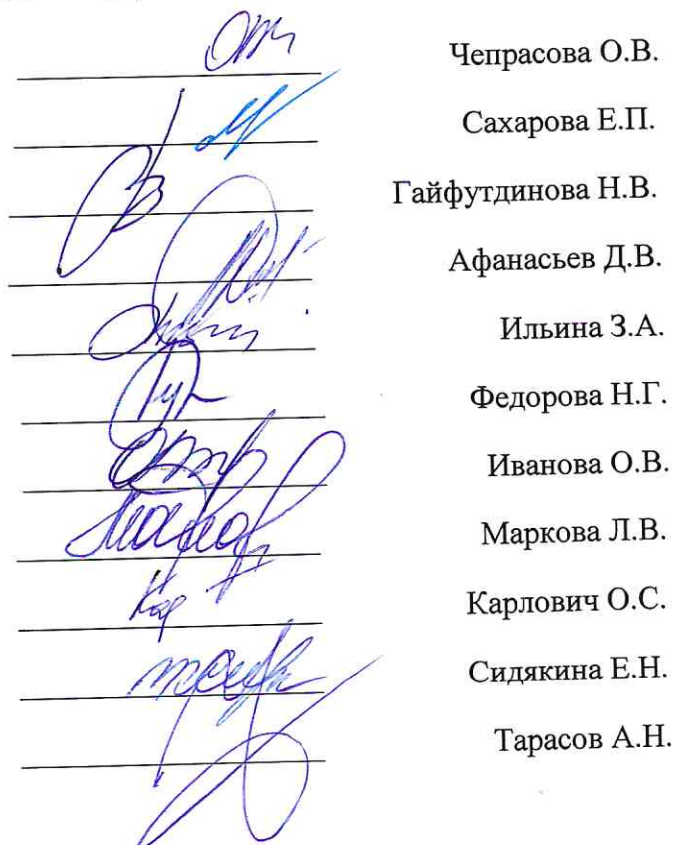 Чепрасова О.В.
Сахарова Е.П.
Гайфутдинова Н.В.
Афанасьев Д.В.
Ильина З.А.
Федорова Н.Г.
Иванова О.В.
Маркова Л.В.
Карлович О.С.
Сидякина Е.Н.
Тарасов А.Н.